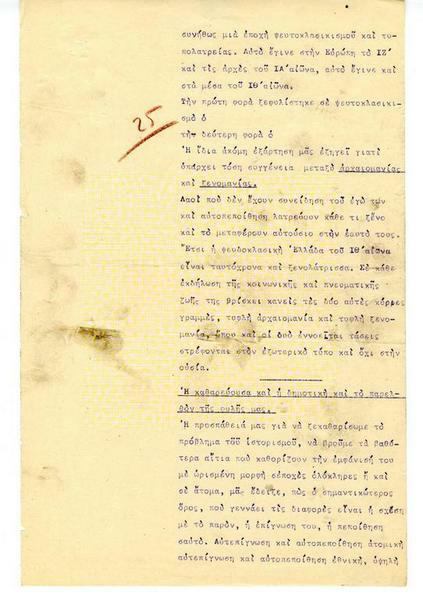 συνήθως μιὰ ἐποχὴ ψευτοκλασικισμοῦ καὶ τυ-
πολατρείας. Αὐτὸ ἔγινε στὴν Εὐρώπη τὸ ΙΖ´
καὶ τὶς ἀρχὲς τοῦ ΙΔ´αἰῶνα, αὐτὸ ἔγινε καὶ
στὰ μέσα τοῦ ΙΘ´αἰῶνα.
Τὴν πρώτη φορὰ ξεφυλίστηκε σὲ ψευτοκλασικι-
σμὸ ὁ
25
τὴν δεύτερη φορὰ ὁ
Ἡ ἴδια ἀκόμη ἐξάρτηση μᾶς ἐξηγεῖ γιατὶ
ὑπάρχει τόση συγγένεια μεταξὺ ἀρχαιομανίας
καὶ ξενομανίας.
Λαοὶ ποὺ δὲν ἔχουν συνείδηση τοῦ ἐγώ των
καὶ αὐτοπεποίθηση λατρεύουν κάθε τι ξένο
καὶ τὸ μεταφέρουν αὐτούσιο στὴν ἑαυτό τους.
Ἔτσι ἡ ψευδοκλασικὴ Ἑλλάδα τοῦ ΙΘ´αἰῶνα
εἶναι ταυτόχρονα καὶ ξενολάτρισσα. Σὲ κάθε
ἐκδήλωση τῆς κοινωνικῆς καὶ πνευματικῆς
ζωῆς της βρίσκει κανεὶς τὶς δύο αὐτὲς κύριες
γραμμές, τυφλὴ ἀρχαιομανία καὶ τυφλὴ ξενο-
μανία, ὅπου καὶ οἱ δυὸ ἐννοεῖται τάσεις
στρέφονται στὸν ἐξωτερικὸ τύπο καὶ ὄχι στὴν
οὐσία.
Ἡ καθαρεύουσα καὶ ἡ δημοτικὴ καὶ τὸ παρελ-
θὸν τῆς φυλῆς μας.
Ἡ προσπάθειά μας γιὰ νὰ ξεκαθαρίσωμε τὸ
πρόβλημα τοῦ ἱστορισμοῦ, νὰ βροῦμε τὰ βαθύ-
τερα αἴτια ποὺ καθορίζουν τὴν ἐμφάνισή του
μὲ ὡρισμένη μορφὴ σὲἐποχὲς ὁλόκληρες ἢ καὶ
σὲ ἄτομα, μᾶς ἔδειξε, πὼς ὁ σημαντικώτερος
ὅρος, ποὺ γεννάει τὶς διαφορὲς εἶναι ἡ σχέση
μὲ τὸ παρόν, ἡ ἐπίγνωση του, ἡ πεποίθηση
σαὐτό. Αὐτεπίγνωση καὶ αὐτοπεποίθηση ἀτομικὴ
αὐτεπίγνωση καὶ αὐτοπεποίθηση ἐθνική, ὑψηλὴ